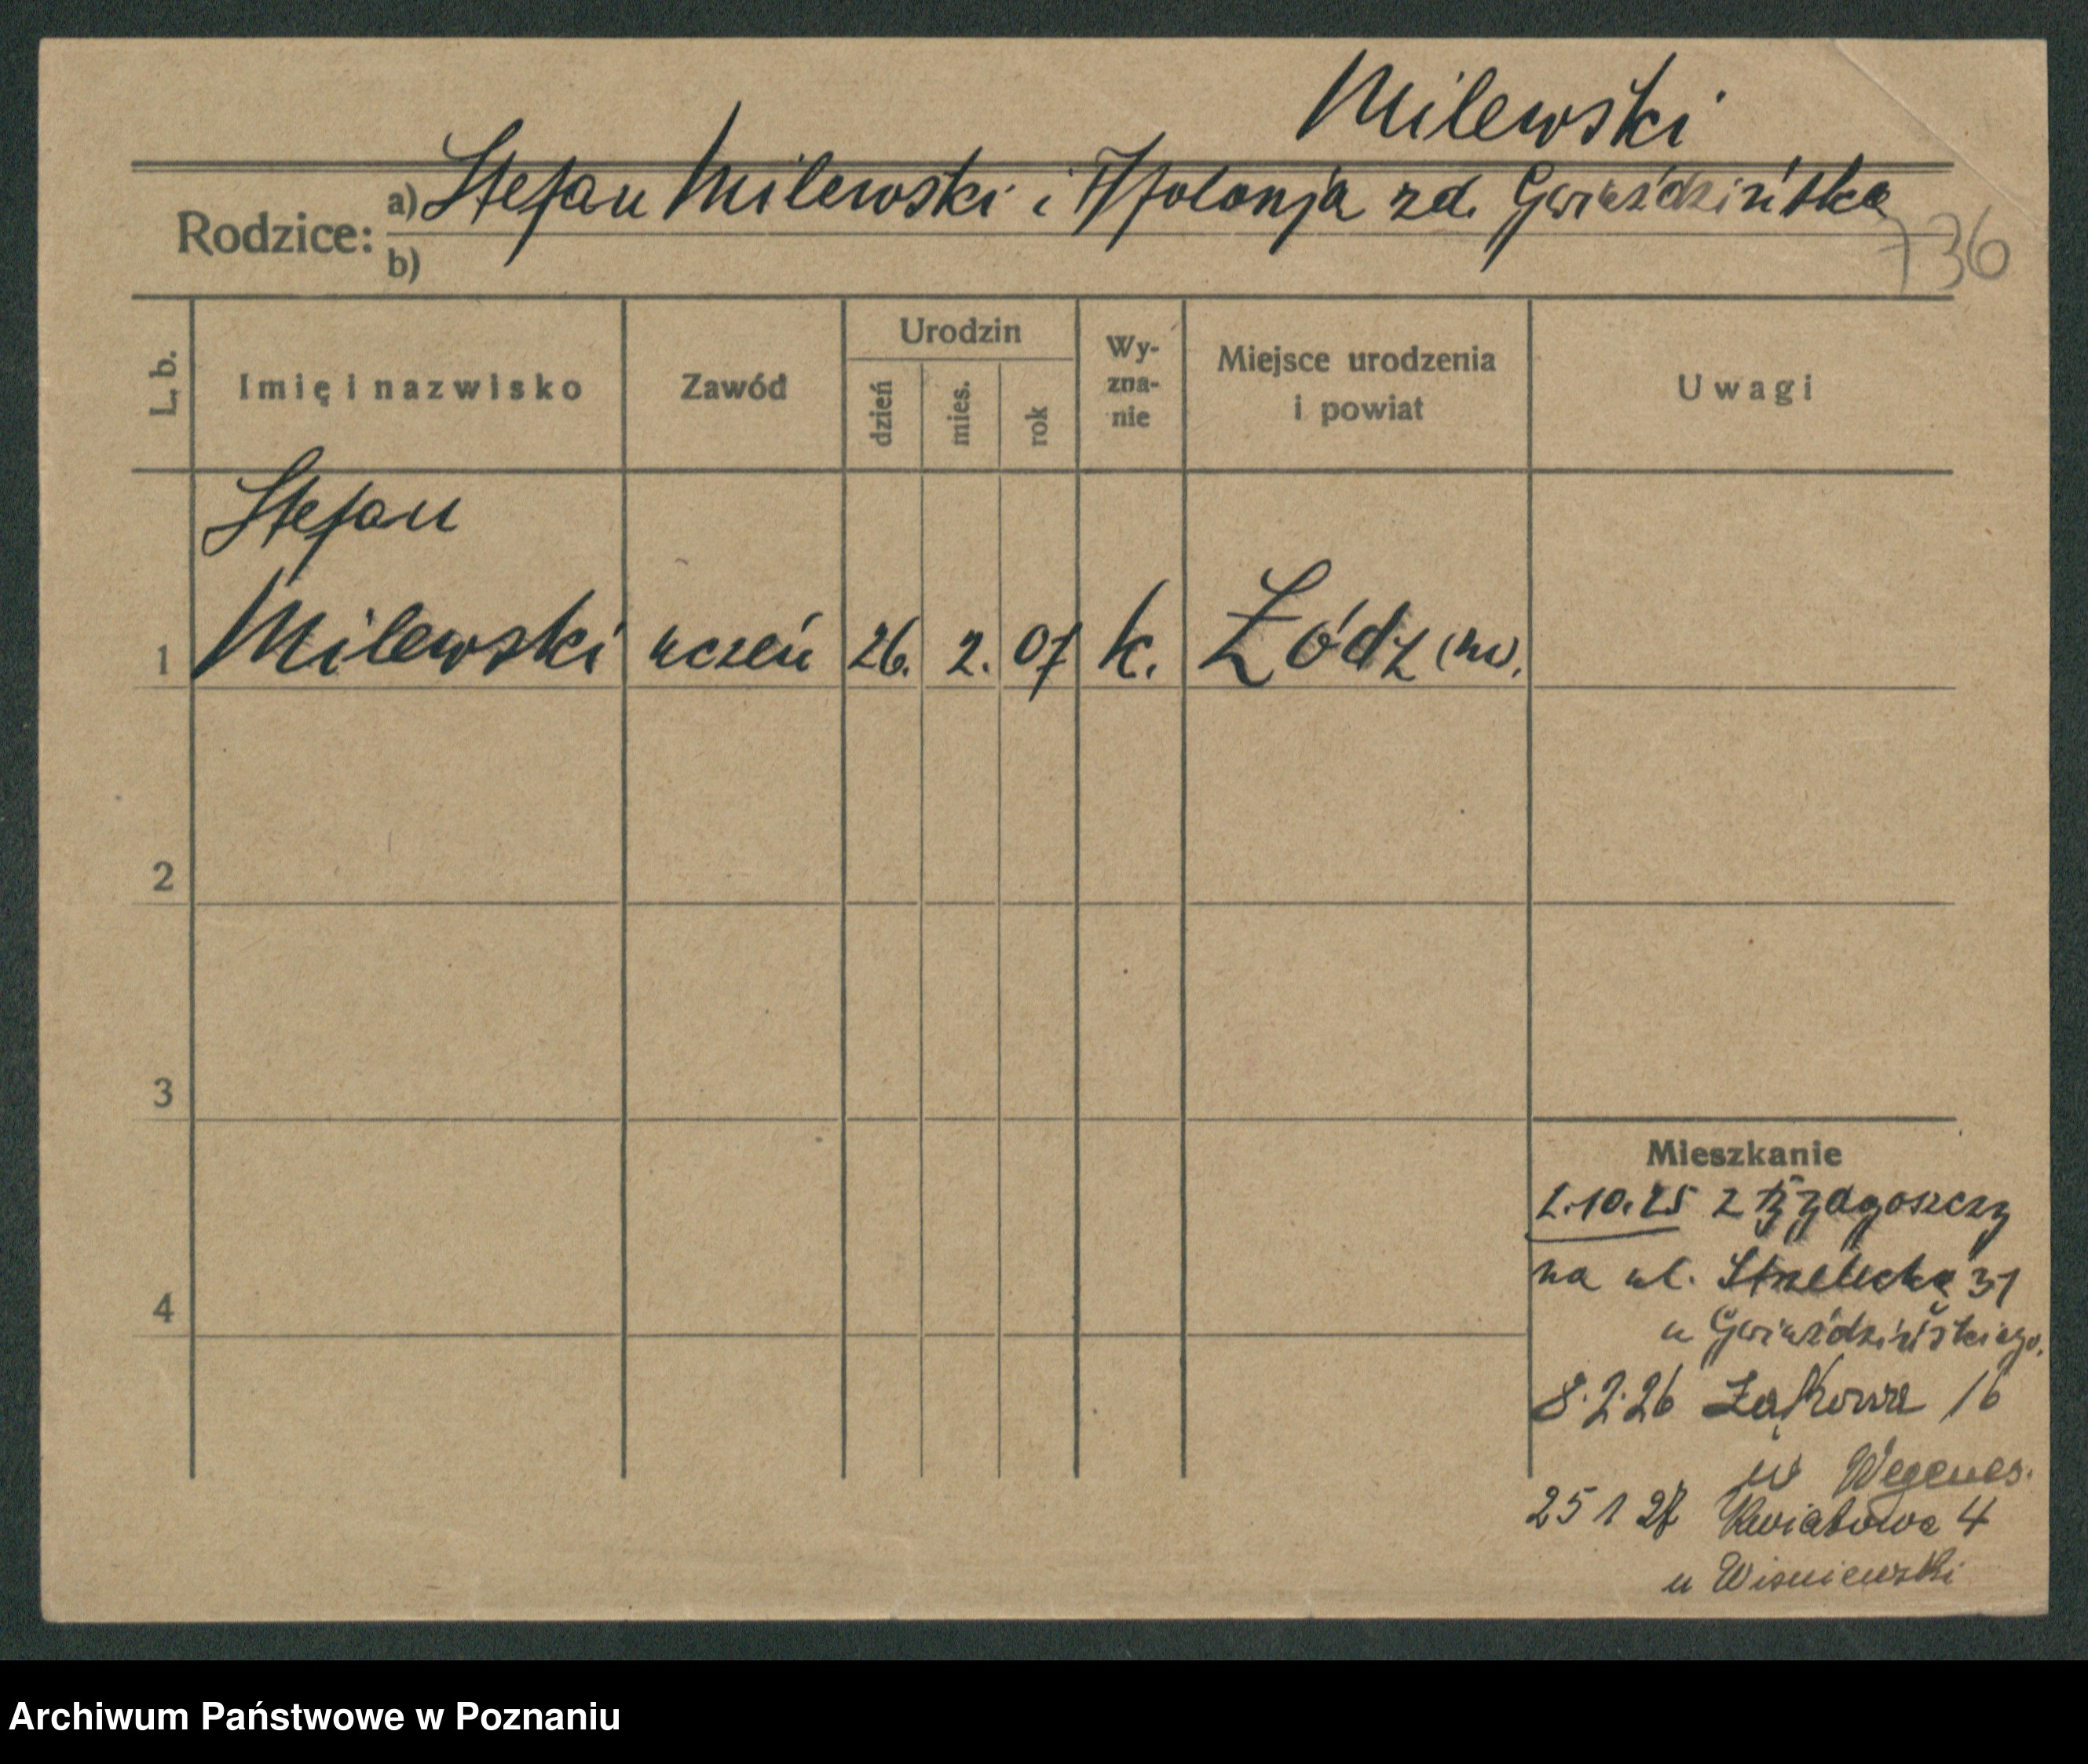 Milewski
Rodzice: a) Stefan Milewski i Apolonja zd. Gwiaździńska
b)
736
L. b.
Imię i nazwisko
Zawód
Urodzin
dzień
mies.
rok
Wy-
zna-
nie
Miejsce urodzenia
i powiat
Uwagi
Stefan
1 Milewski uczeń 26. 2. 07 k. Łódz (m).
2
3
4
Mieszkanie
1.10.25 z Bydgoszczy
na ul. Strzelecka 31
u Gwiaździńskiego.
8.2.26 Łąkowa 16
u Wegener.
25 1 27 Kwiatowa 4
u Wisniewski
Archiwum Państwowe w Poznaniu